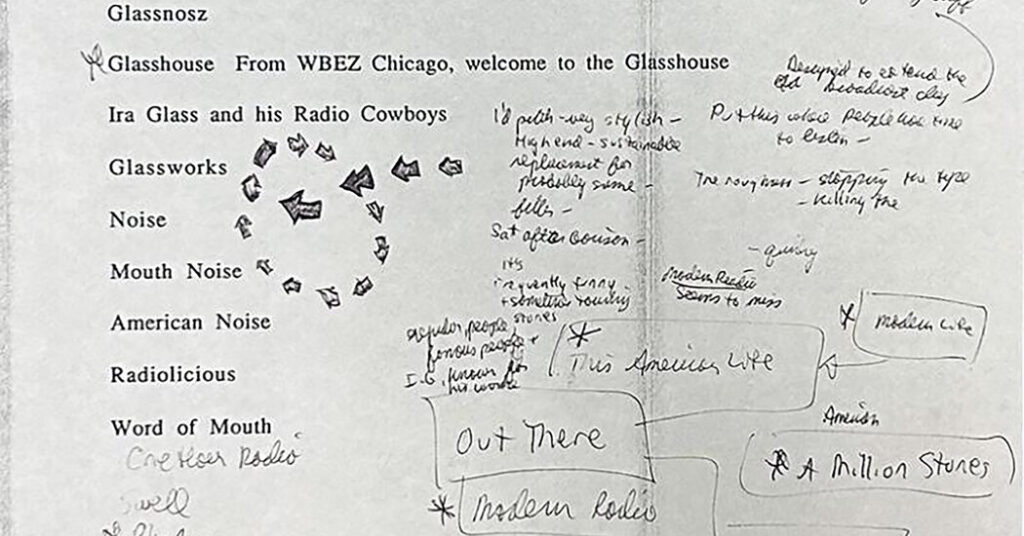 Glassnosz
Glasshouse From WBEZ Chicago, welcome to the Glasshouse
Ira Glass and his Radio Cowboys
Glassworks
Noise
Mouth Noise
American Noise
Radiolicious
Word of Mouth
Radio
Swell
I'd pitch - very stylish -
High end - sustainable
replacement for
probably some -
Sat after
it's
frequently funny
stories
regular people
famous people +
I.G. known for
his work
Designed to extend the
broadcast day
Put this where people have time
to listen -
The roughness - stopping the type
- killing the
Modern Radio
Seems to miss
* Modern Life
* This American Life
Out There
* Modern Radio
American
* A Million Stories